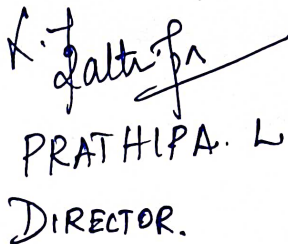 PRATHIPA. L
DIRECTOR.